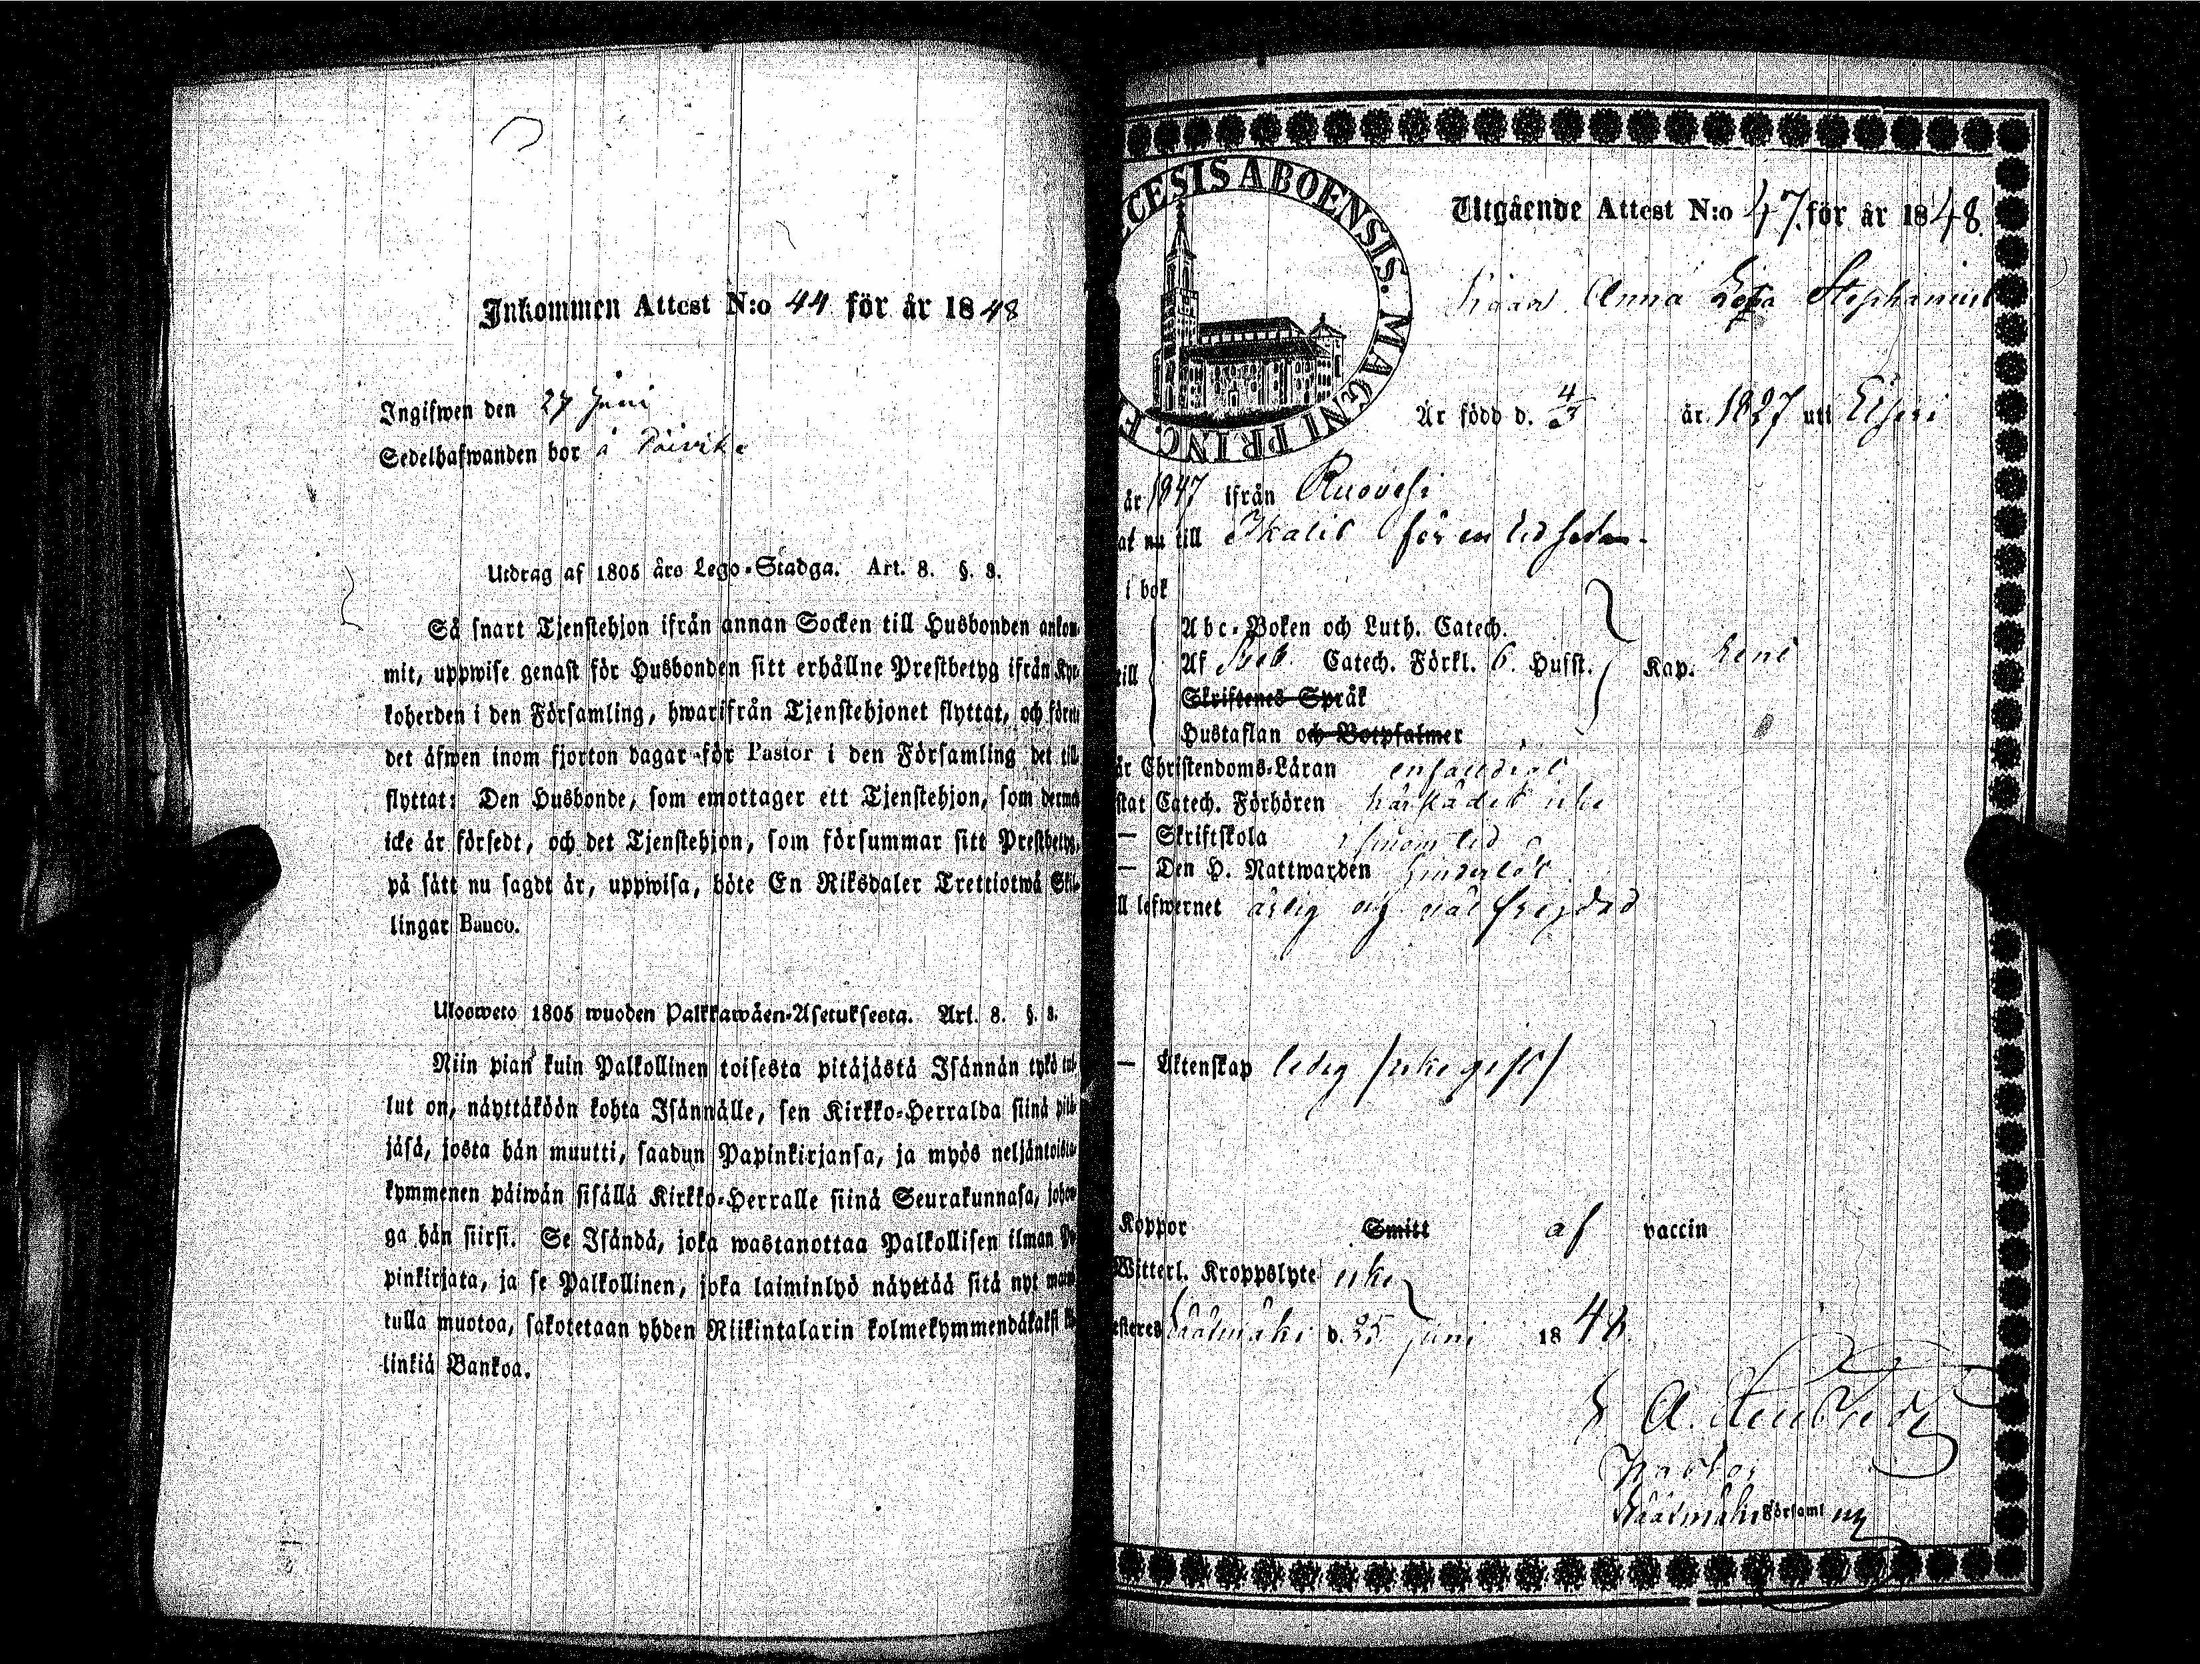 Inkommen Attest N:o 44 för år 1848
Ingifwen den 27 Juni
Sedelhafwanden bor å
Utdrag af 1805 års Lego-Stadga. Art. 8. §. 8.
Så snart Tjenstehjon ifrån annan Socken till Husbonden ankom-
mit, uppwise genast för Husbonden sitt erhållne Prestbetyg ifrån Kyr-
koherden i den Församling, hwarifrån Tjenstehjonet flyttat, och förete
det äfwen inom fjorton dagar för Pastor i den Församling det till
flyttat: Den Husbonde, som emottager ett Tjenstehjon, som dermed
icke är försedt, och det Tjenstehjon, som försummar sitt Prestbetyg,
på sätt nu sagdt är, uppwisa, böte En Riksdaler Trettiotwå Skil-
lingar Banco.
Ulosweto 1805 wuoden Palkkawäen-Asetuksesta. Art. 8. §. 8.
Niin pian kuin Palkollinen toisesta pitäjästä Isännän tykö tul-
lut on, näyttäköön kohta Isännälle, sen Kirkko-Herralda siinä pitä-
jäsä, josta hän muutti, saadun Papinkirjansa, ja myös neljäntoista-
kymmenen päiwän sisällä Kirkko-Herralle siinä Seurakunnasa, johon-
ga hän siirsi. Se Isändä, joka wastanottaa Palkollisen ilman Pa-
pinkirjata, ja se Palkollinen, joka laiminlyö näyttää sitä nyt main-
tulla muotoa, sakotetaan yhden Riikintalarin kolmekymmendäkaksi kil-
linkiä Bankoa.
CESIS ABOENSIS. MAGNI PRINC. F
Utgående Attest N:o 47. för år 1848.
Anna Stephansd
Är född d. 4/3 år 1827 uti
år 1847 ifrån Ruovesi
at nu till Ikalis för en tid sedan
i bok
Abc-Boken och Luth. Catech.
Af Catech. Förkl. 6. Husst. Kap.
Skriftenes Språk
Hustaflan och Botpsalmer
är Christendoms-Läran enfaldigt
stat Catech. Förhören
— Skriftskola
— Den H. Nattwarden
ll lefwernet ärlig och väl frejdad
— Äktenskap ledig (icke gift)
Koppor Smitt af vaccin
Witterl. Kroppslyte icke
esteres Sääksmäki d. 25 Juni 1848.
Pastor
Sääksmäki Församl